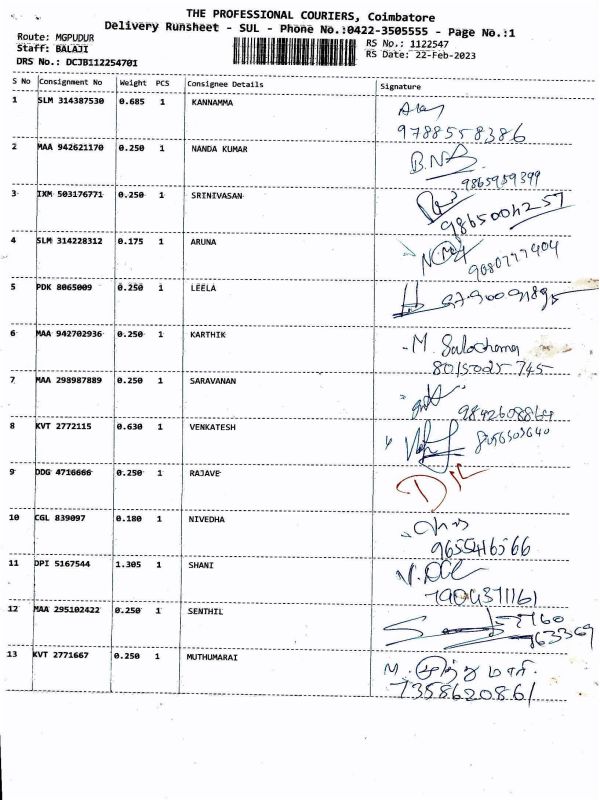 THE PROFESSIONAL COURIERS, Coimbatore
Delivery Runsheet - SUL - Phone No.:0422-3505555 - Page No.:1
Route: MGPUDUR
Staff: BALAJI
DRS No.: DCJB112254701
RS No.: 1122547
RS Date: 22-Feb-2023
S No Consignment No Weight PCS Consignee Details Signature
1 SLM 314387530 0.685 1 KANNAMMA
9788558386
2 MAA 942621170 0.250 1 NANDA KUMAR
9865959399
3 IXM 503176771 0.250 1 SRINIVASAN
9865004257
4 SLM 314228312 0.175 1 ARUNA
9080777404
5 PDK 8065009 0.250 1 LEELA
6 MAA 942702936 0.250 1 KARTHIK
M. Sulochana
8015025745
7 MAA 298987889 0.250 1 SARAVANAN
8 KVT 2772115 0.630 1 VENKATESH
8056503640
9 DDG 4716666 0.250 1 RAJAVE
10 CGL 839097 0.180 1 NIVEDHA
11 DPI 5167544 1.305 1 SHANI
12 MAA 295102422 0.250 1 SENTHIL
63369
13 KVT 2771667 0.250 1 MUTHUMARAI
M. முத்து மாரி.
7358620861